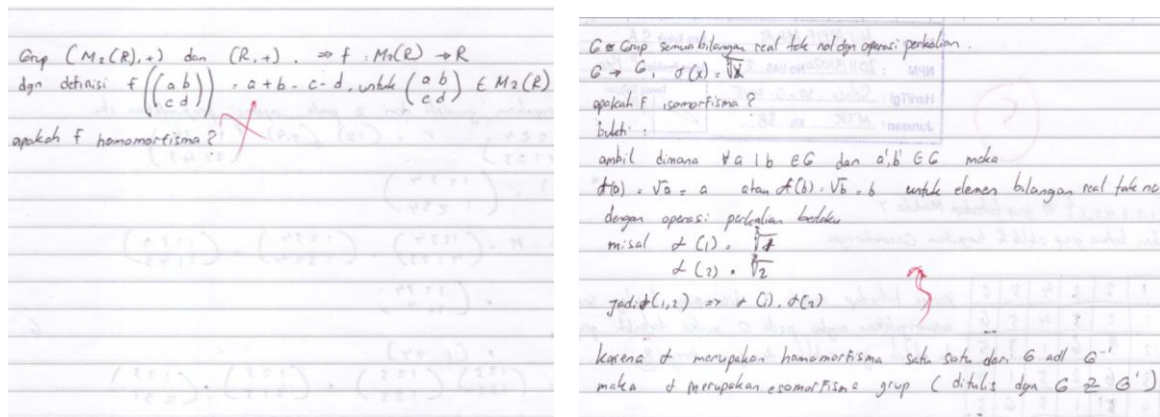 Grup (M₂(R), +) dan (R, +). ⇒ f : M₂(R) → R
dgn definisi f((a b
c d)) = a + b - c - d, untuk (a b
c d) ∈ M₂(R)
apakah f homomorfisma?
G Grup semua bilangan real tak nol dgn operasi perkalian.
G → G, f(x) = ∛x
apakah f isomorfisma?
bukti :
ambil dimana ∀ a, b ∈ G dan a', b' ∈ G maka
f(a) = √a = a atau f(b) = √b = b untuk elemen bilangan real tak no
dengan operasi perkalian berlaku
misal f(1) = ∛1
f(2) = ∛2
jadi f(1,2) => f(1). f(2)
karena f merupakan homomorfisma satu satu dari G adl G⁻¹
maka f merupakan esomorfisma grup (ditulis dgn G ≅ G')